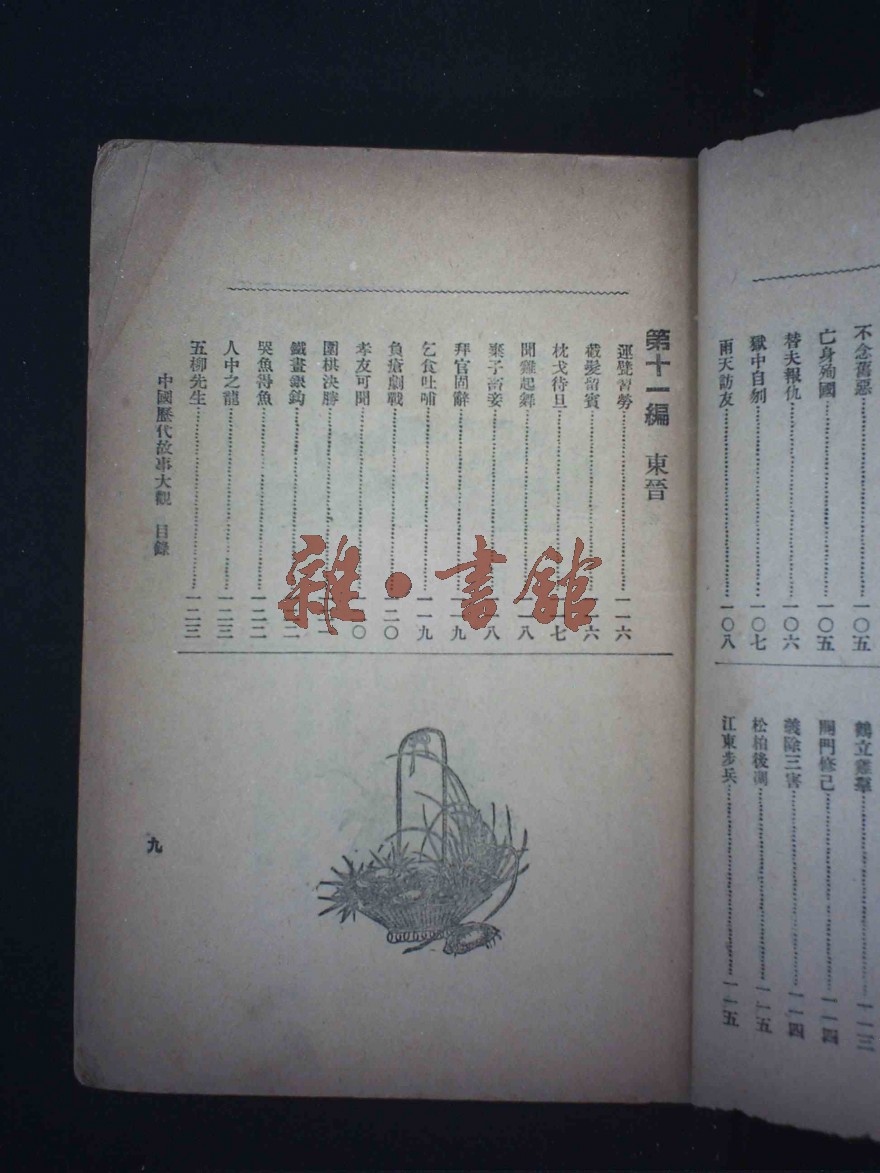 不念舊惡……一〇五
亡身殉國……一〇五
替夫報仇……一〇六
獄中自刎……一〇七
雨天訪友……一〇八
鶴立雞羣……一一三
閉門修己……一一四
義除三害……一一四
松柏後凋……一一五
江東步兵……一一五
第十一編 東晉
運甓習勞……一一六
截髮留賓……一一六
枕戈待旦……一一七
聞雞起舞……一一八
棄子納妾……一一八
拜官固辭……一一九
乞食吐哺……一一九
負瘡劇戰……一二〇
孝友可聞……二〇
圍棋決勝……
鐵畫銀鈎……二二
哭魚得魚……一二二
人中之龍……一二三
五柳先生……一二三
中國歷代故事大觀 目錄
九
雜·書館